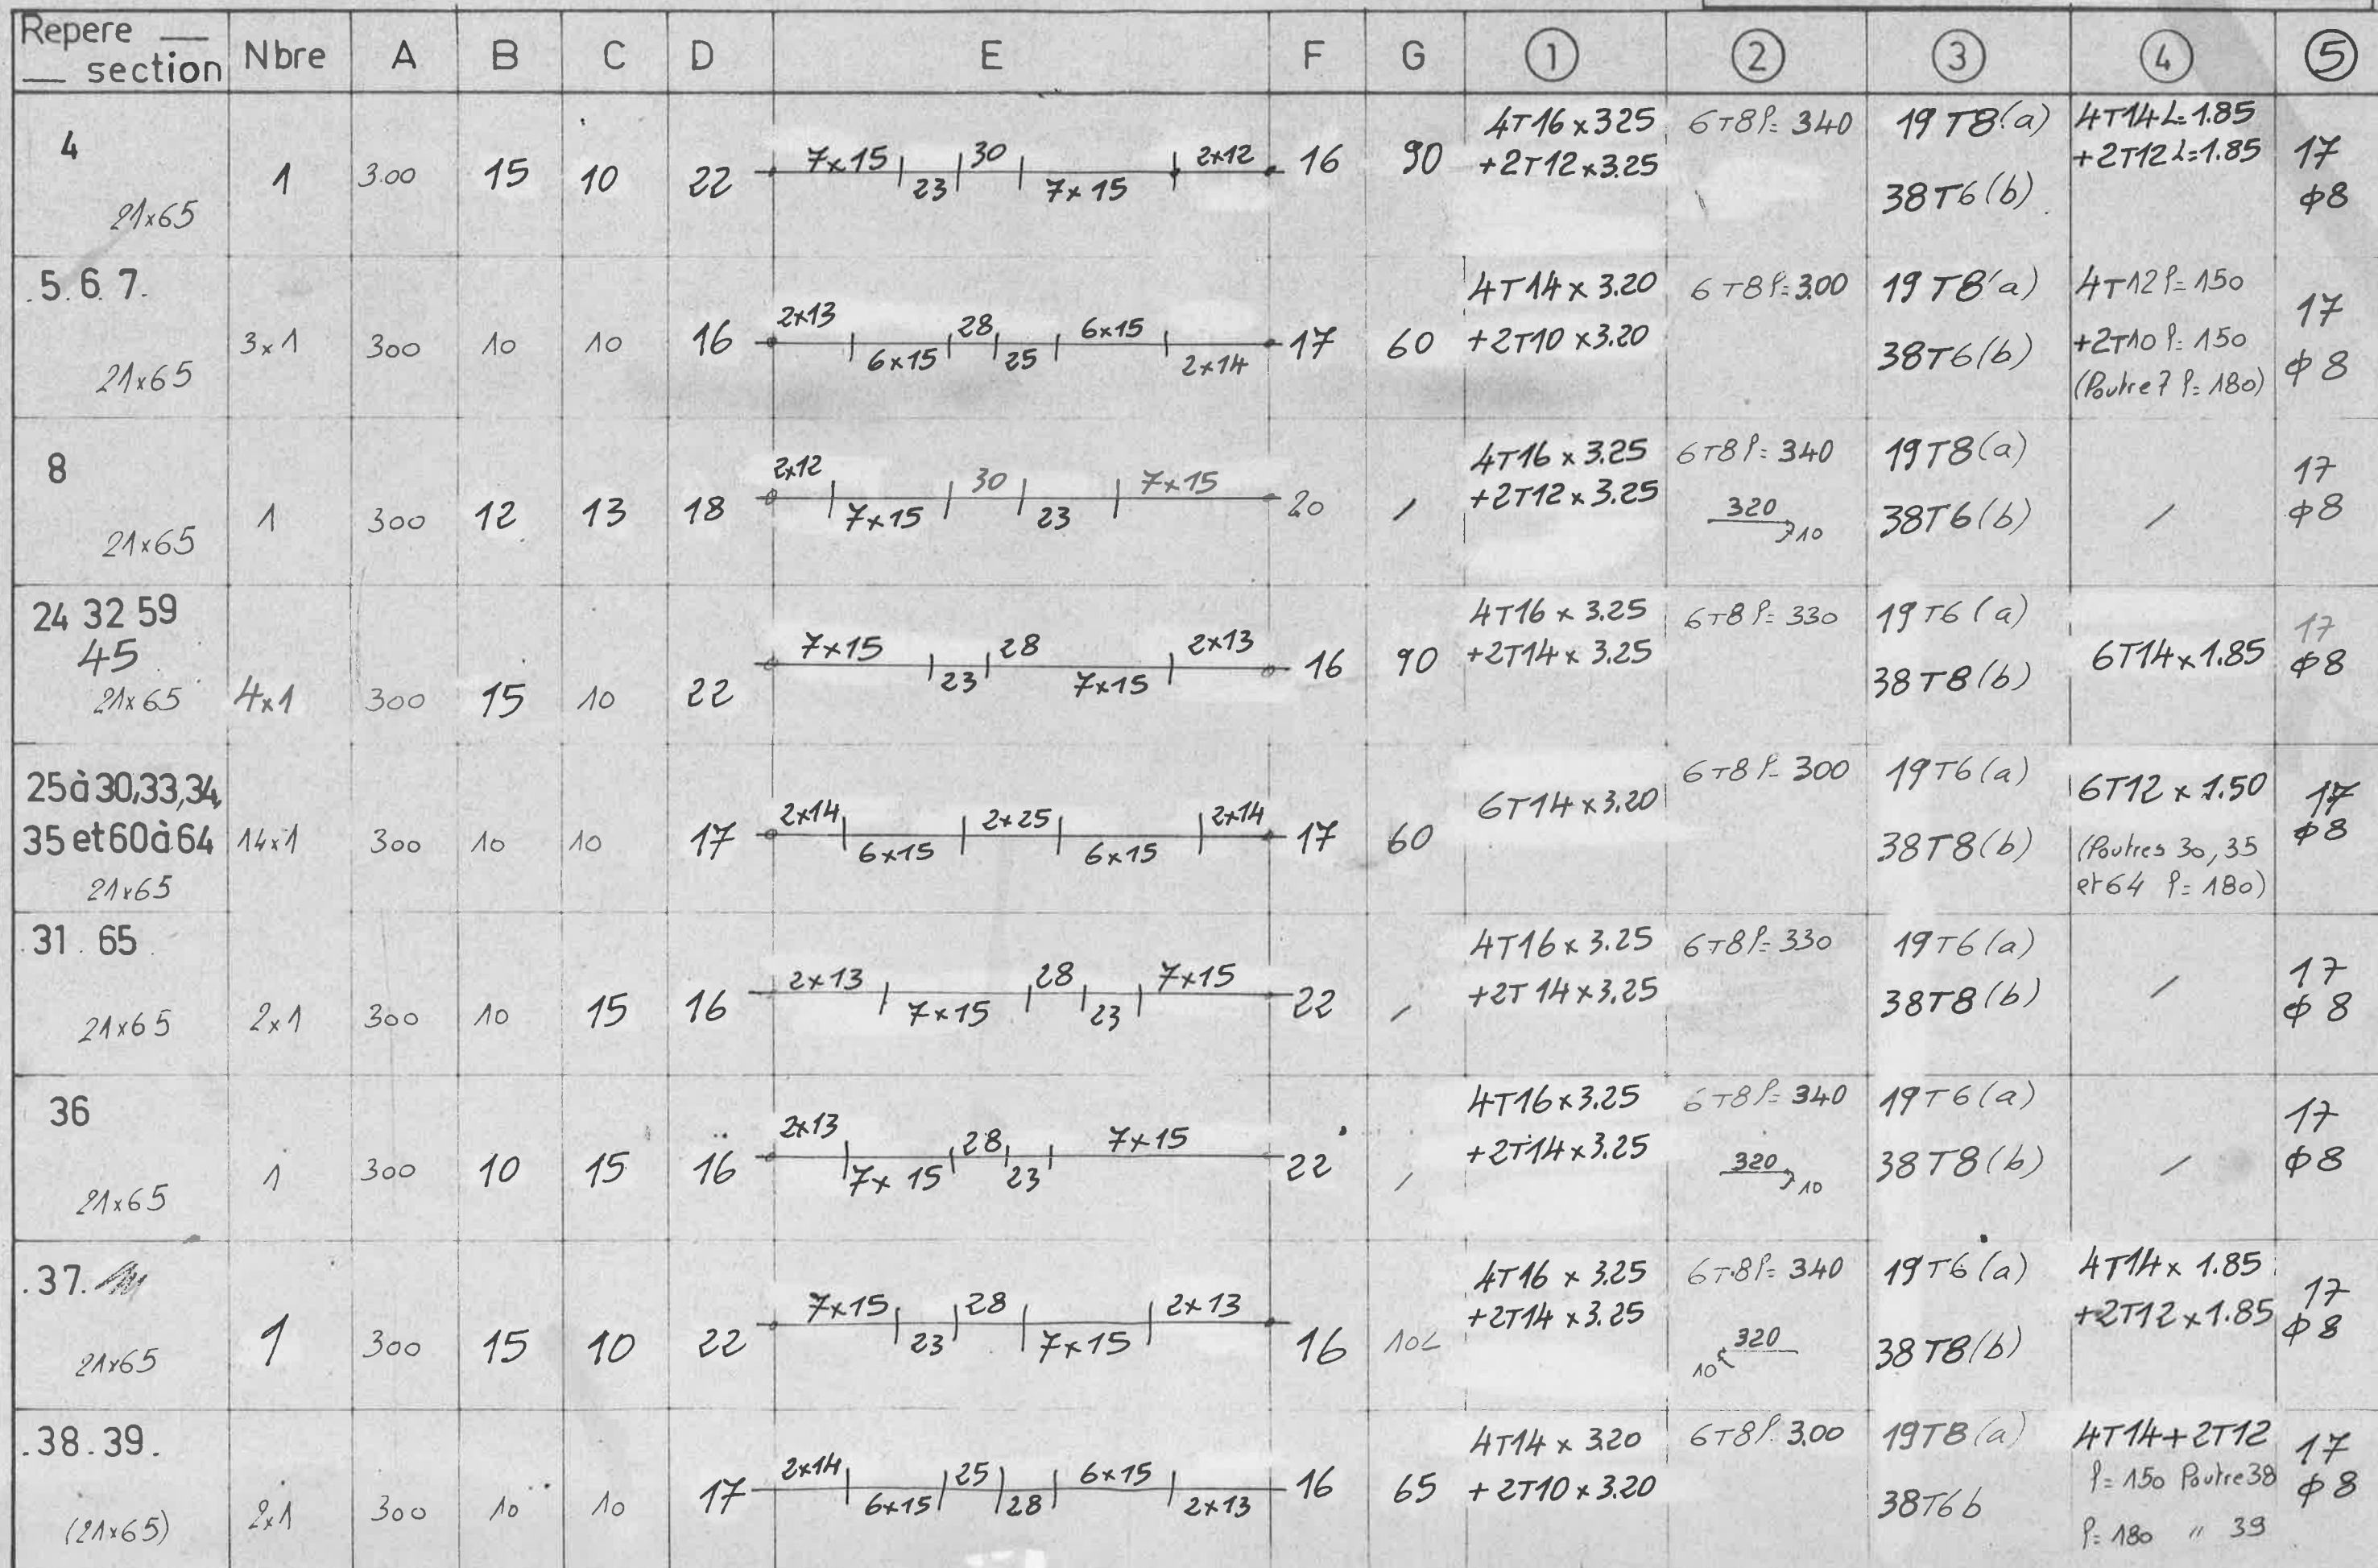 Repere — section Nbre A B C D E F G ① ② ③ ④ ⑤
4 21x65 1 3.00 15 10 22 7x15 23 30 7x15 2x12 16 90 4T16 x 325 +2T12 x 3.25 6T8 l= 340 19 T8 (a) 38T6 (b) 4T14 L=1.85 +2T12 L=1.85 17 ϕ8
.5.6.7. 21x65 3x1 300 10 10 16 2x13 6x15 28 25 6x15 2x14 17 60 4T14 x 3.20 +2T10 x 3.20 6T8 l=3.00 19 T8 (a) 38T6 (b) 4T12 l= 150 +2T10 l= 150 (Poutre 7 l= 180) 17 ϕ8
8 21x65 1 300 12 13 18 2x12 7x15 30 23 7x15 20 / 4T16 x 3.25 +2T12 x 3.25 6T8 l= 340 320 10 19T8 (a) 38T6 (b) / 17 ϕ8
24 32 59 45 21x65 4x1 300 15 10 22 7x15 23 28 7x15 2x13 16 90 4T16 x 3.25 +2T14 x 3.25 6T8 l= 330 19T6 (a) 38T8 (b) 6T14 x 1.85 17 ϕ8
25 à 30,33,34, 35 et 60 à 64 21x65 14x1 300 10 10 17 2x14 6x15 2x25 6x15 2x14 17 60 6T14 x 3.20 6T8 l= 300 19T6 (a) 38T8 (b) 6T12 x 1.50 (Poutres 30, 35 et 64 l= 180) 17 ϕ8
.31.65 21x65 2x1 300 10 15 16 2x13 7x15 28 23 7x15 22 / 4T16 x 3.25 +2T14 x 3.25 6T8 l= 330 19T6 (a) 38T8 (b) / 17 ϕ8
36 21x65 1 300 10 15 16 2x13 7x15 28 23 7x15 22 / 4T16 x 3.25 +2T14 x 3.25 6T8 l= 340 320 10 19T6 (a) 38T8 (b) / 17 ϕ8
.37. 21x65 1 300 15 10 22 7x15 23 28 7x15 2x13 16 4T16 x 3.25 +2T14 x 3.25 6T8 l= 340 10 320 19T6 (a) 38T8 (b) 4T14 x 1.85 +2T12 x 1.85 17 ϕ8
.38.39. (21x65) 2x1 300 10 10 17 2x14 6x15 25 28 6x15 2x13 16 65 4T14 x 3.20 +2T10 x 3.20 6T8 l 3.00 19T8 (a) 38T6 b 4T14+2T12 l= 150 Poutre 38 l= 180 " 39 17 ϕ8